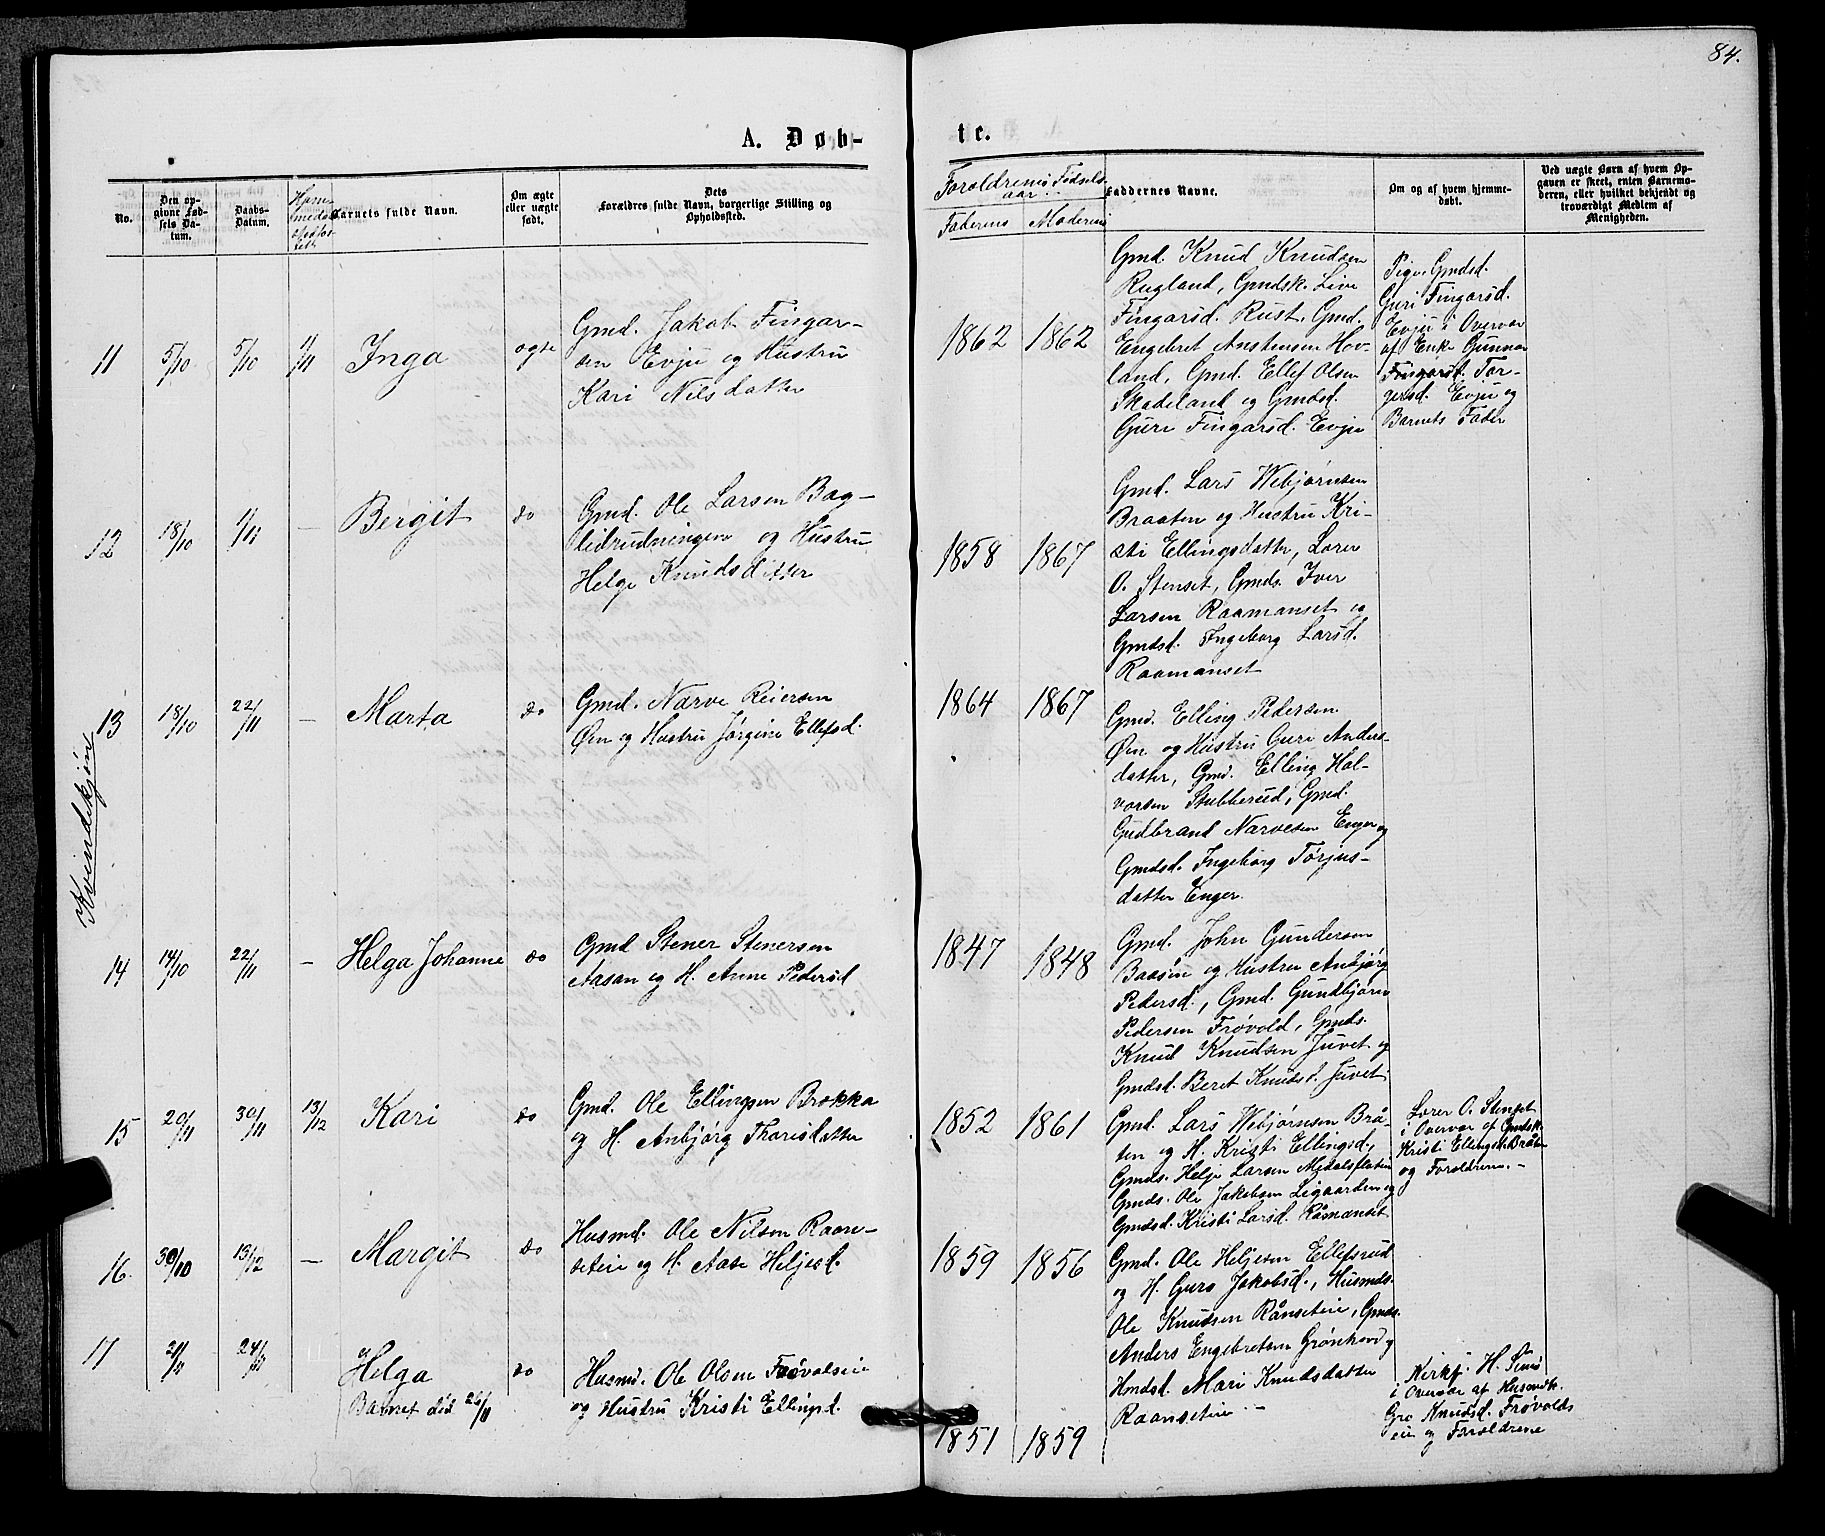 84.
A. Døb-
te.
No.
Den op-
givne Fød-
sels Da-
tum.
Daabs-
Datum.
Barnets fulde Navn.
Om ægte
eller uægte
født.
Dets
Forældres fulde Navn, borgerlige Stilling og
Opholdssted.
Forældrenes Fødsels-
aar:
Faderens Moderens
Faddernes Navne.
Om og af hvem hjemme-
døbt.
Ved uægte Børn af hvem Op-
gaven er skeet, enten Barnemo-
deren, eller hvilket bekjendt og
troværdigt Medlem af
Menigheden.
Kvindekjøn
11 5/10 5/10 1/11 Inga ægte
Gmd. Jakob Fingar-
sen Evju og Hustru
Kari Nilsdatter
1862 1862
Gmd. Knud Knudsen
Rugland, Gmdsk. Live
Fingarsd. Rust, Gmd.
Engebret Anstensen Hov-
land, Gmd. Ellef Olsen
Skadeland og Gmdsd.
Guri Fingarsd. Evju
Pige, Gmdsd.
Guri Fingarsd.
Evju i Overvær
af Enke Gunvor
Fingarsd. Tor-
gersd. Evju og
Barnets Fader
12 18/10 1/11 — Bergit do
Gmd. Ole Larsen Bag-
lidrudningen og Hustru
Helge Knudsdatter
1858 1867
Gmd. Lars Webjørnsen
Braaten og Hustru Kri-
sti Ellingsdatter, Lærer
O. Stenset, Gmds. Iver
Larsen Raamanset og
Gmdsd. Ingeborg Larsd.
Raamanset
13 18/10 22/11 — Marta do
Gmd. Narve Reiersen
Øen og Hustru Jørgine Ellefsd.
1864 1867
Gmd. Elling Pedersen
Øen og Hustru Guri Anders-
datter, Gmd. Elling Hal-
vorsen Stubberud, Gmd.
Gudbrand Narvesen Enger og
Gmdsd. Ingeborg Torjus-
datter Enger.
14 14/10 22/11 — Helga Johanne do
Gmd Stener Stenersen
Aasan og H. Anne Pedersd
1847 1848
Gmd. John Gundersen
Baasen og Hustru Anbjørg
Pedersd., Gmd. Gundbjørn
Pedersen Frøvold, Gmds.
Knud Knudsen Juvet og
Gmdsd. Beret Knudsd. Juvet
15 20/11 30/11 13/12 Kari do
Gmd. Ole Ellingsen Brokka
og H. Anbjørg Thorisdatter
1852 1861
Gmd. Lars Webjørnsen Brå-
ten og H. Kristi Ellingsd.,
Gmds. Helje Larsen Mjdalsplaten
Gmds. Ole Jakobsen Ligaarden og
Gmdsd. Kristi Larsd. Råmanset
Lærer O. Stenset
i Overvær af Gmdsk.
Kristi Ellingsd. Bråten
og Forældrene. –
16. 30/10 13/12 — Margit do
Husmd. Ole Nilsen Raan-
seteie og H. Aase Heljesd.
1859 1856
Gmd. Ole Heljesen Ellefsrud
og H. Guro Jakobsd., Husmds.
Ole Knudsen Rånseteie, Gmds.
Anders Engebretsen Grønhovd og
Hmdsd. Mari Knudsdatter
Raanseteie –
17 2/11 Helga do
Barnet død 26/11
Husmd. Ole Olsen Frøvolseie
og Hustru Kristi Ellingsd.
1851 1859
Kirksj. H.
i Overvær af Husmdk.
Gro Knudsd. Frøvolds
eie og Forældrene